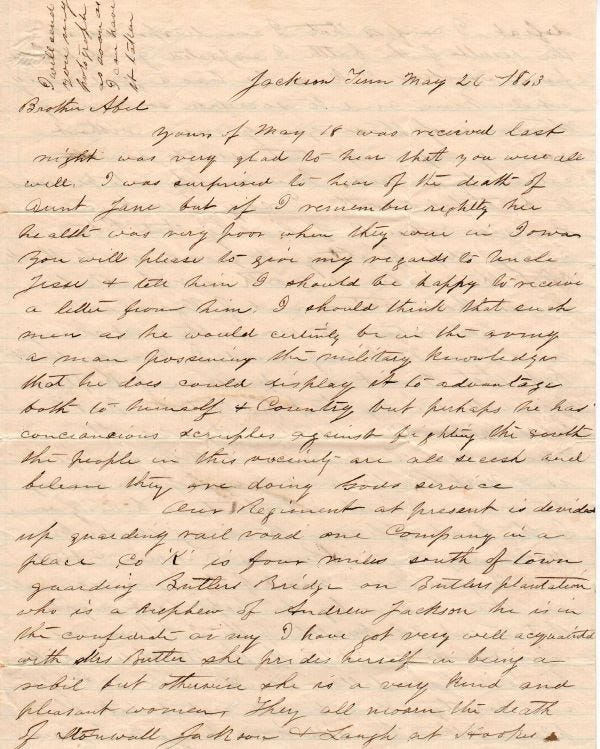 I will send
you my
photograph
as soon as
I can have
it taken
Jackson Tenn May 26 1863
Brother Abel
Yours of May 18 was recieved last
night was very glad to hear that you were all
well. I was surprised to hear of the death of
Aunt Jane but if I remember rightly her
health was very poor when they were in Iowa
You will please to give my regards to Uncle
Jesse & tell him I should be happy to receive
a letter from him. I should think that such
men as he would certinly be in the army
a man possessing the military knowledge
that he does could display it to advantage
both to himself & Country but perhaps he has
conciancious scruples against fighting the south
the people in this vicinity are all secesh and
believe they are doing Gods service
Our Regiment at present is divided
up guarding rail road one Company in a
place Co "K" is four miles south of town
guarding Butlers Bridge on Butlers plantation
who is a Nephew of Andrew Jackson he is in
the confederate army I have got very well acquainted
with Mrs Butler she prides herself in being a
rebil but otherwise she is a very kind and
pleasant women. They all mourn the death
of Stonwall Jackson & Laugh at Hooker